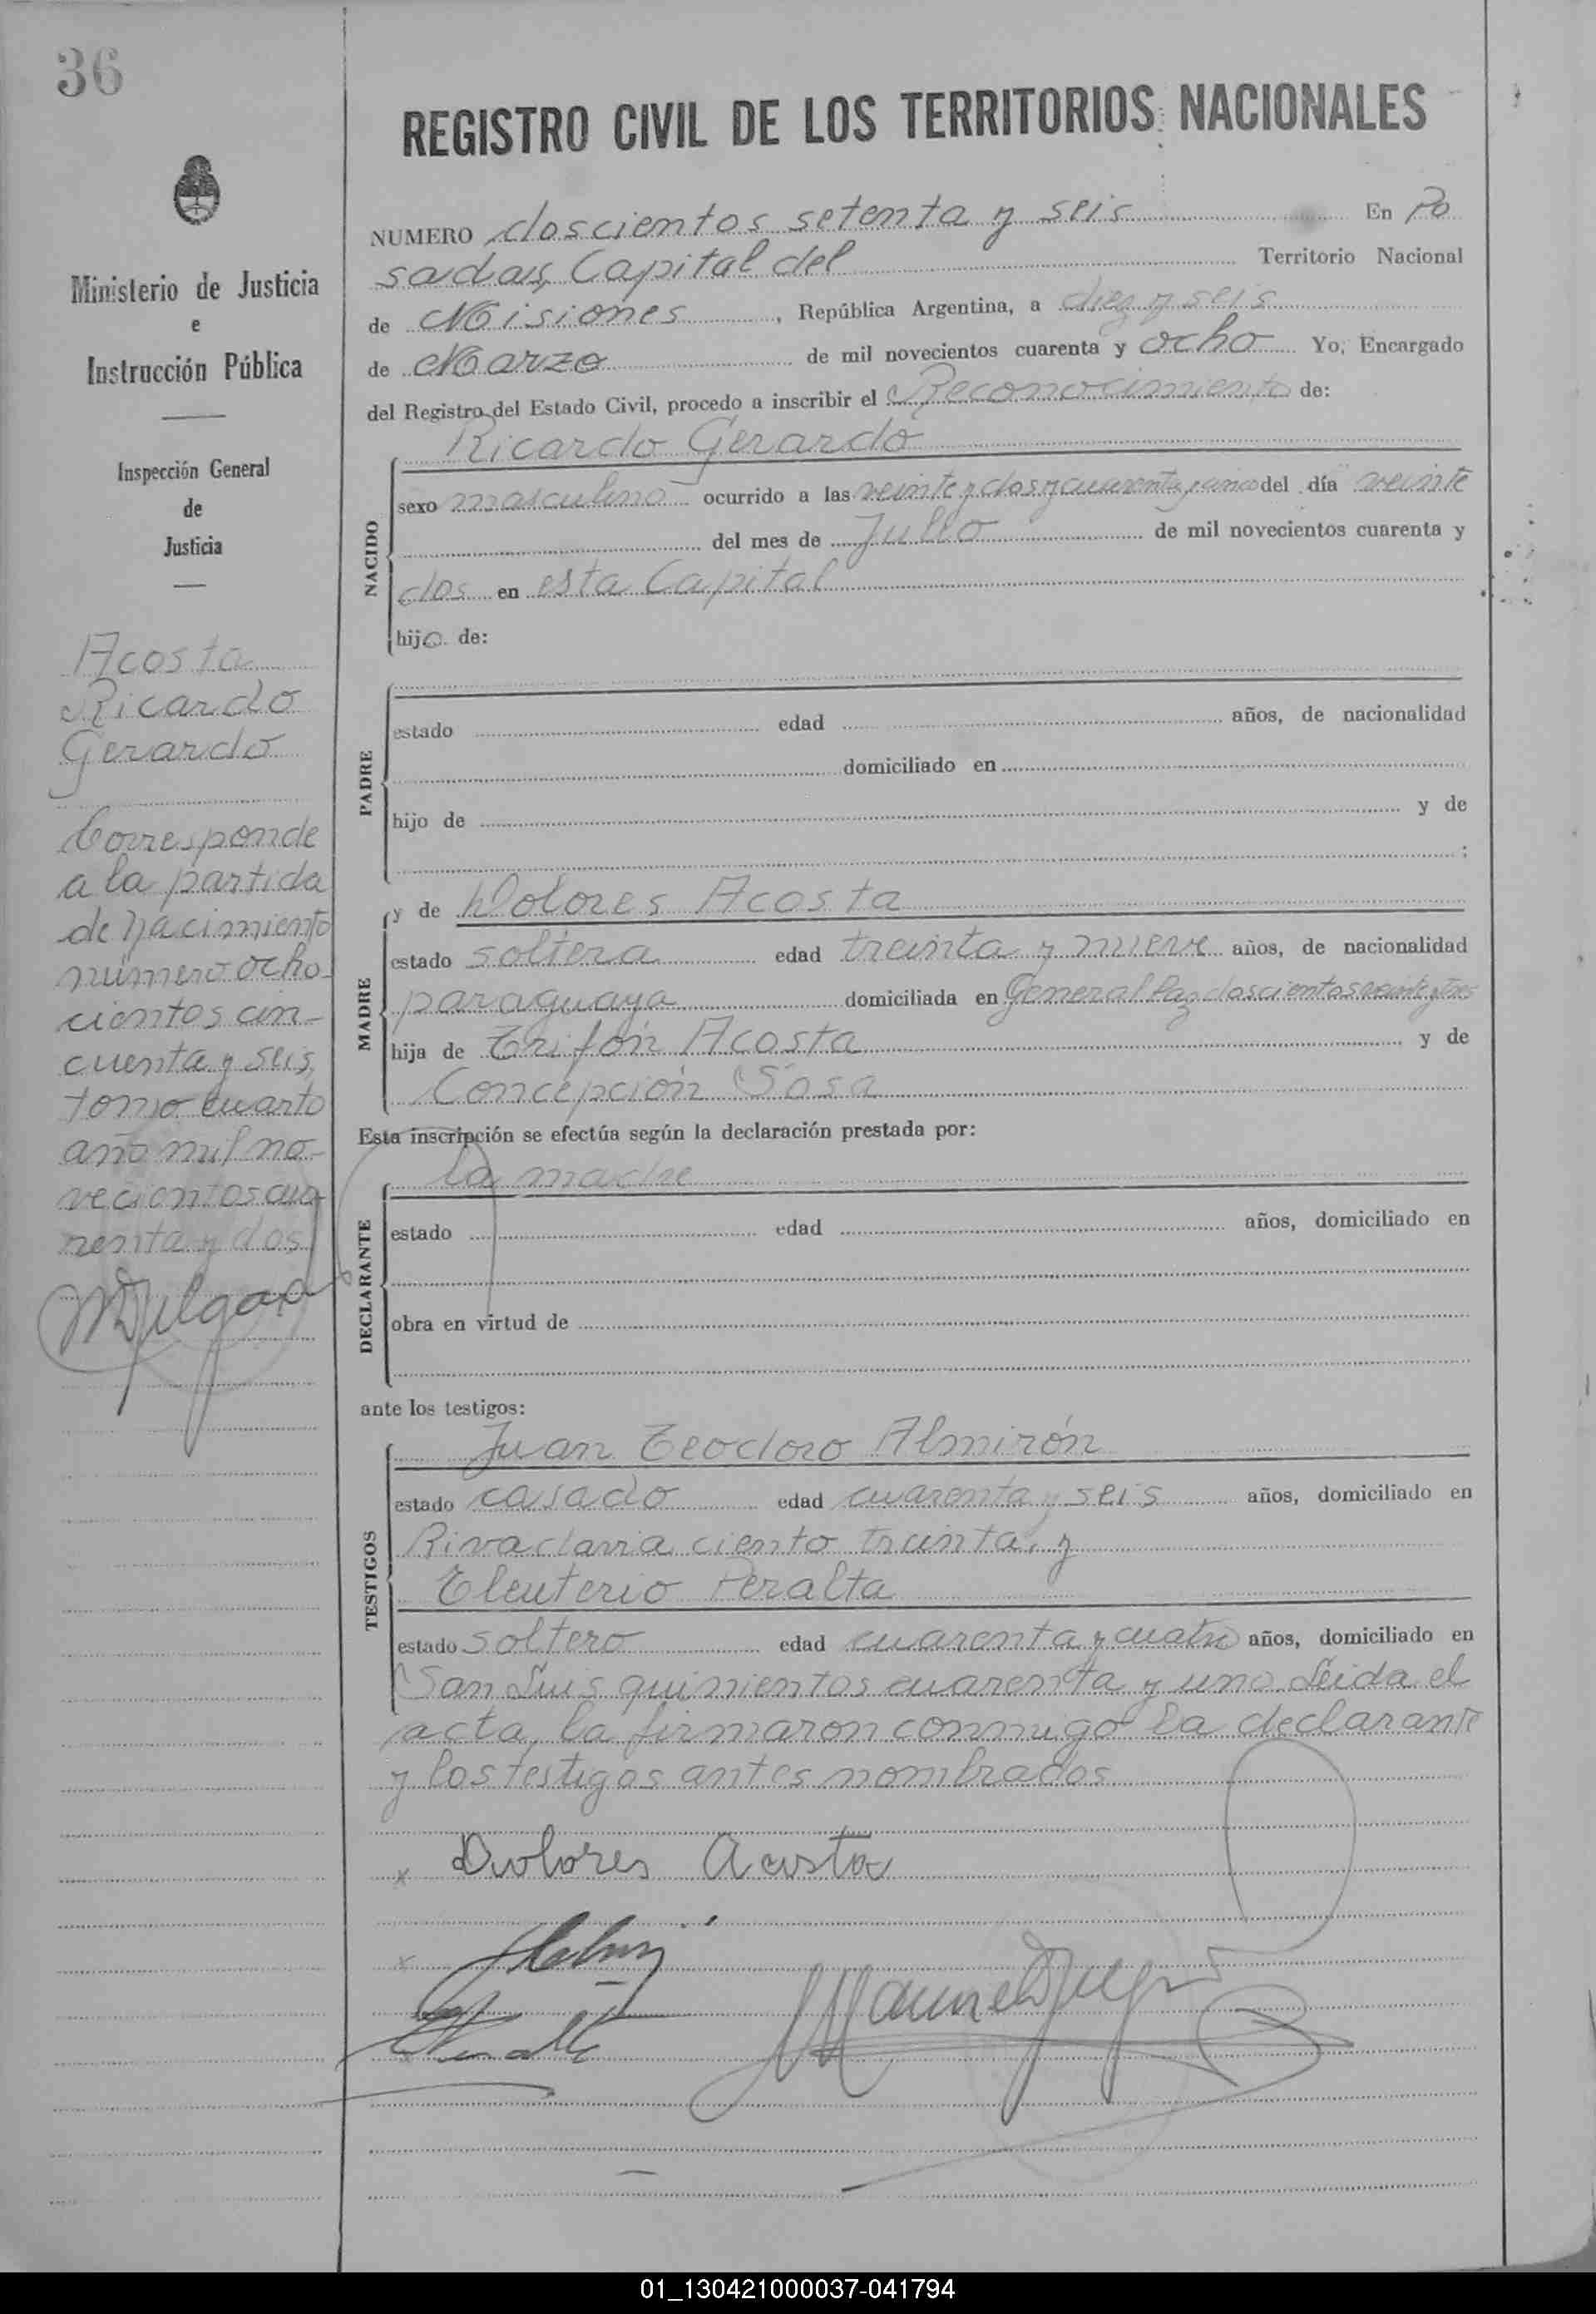 36
Ministerio de Justicia
e
Instrucción Pública
Inspección General
de
Justicia
Acosta
Ricardo
Gerardo
Corresponde
a la partida
de nacimiento
número ocho-
cientos cin-
cuenta y seis,
tomo cuarto
año mil no-
vecientos cua-
renta y dos
REGISTRO CIVIL DE LOS TERRITORIOS NACIONALES
NUMERO doscientos setenta y seis En Po
sadas, Capital del Territorio Nacional
de Misiones, República Argentina, a diez y seis
de Marzo de mil novecientos cuarenta y ocho Yo, Encargado
del Registro del Estado Civil, procedo a inscribir el Reconocimiento de:
Ricardo Gerardo
NACIDO
sexo masculino ocurrido a las veinte y dos y cuarenta y cinco del día veinte
del mes de Julio de mil novecientos cuarenta y
dos en esta Capital
hijo de:
PADRE
estado edad años, de nacionalidad
domiciliado en
hijo de y de
;
MADRE
y de Dolores Acosta
estado soltera edad treinta y nueve años, de nacionalidad
paraguaya domiciliada en General Paz doscientos veinte y tres
hija de Trifón Acosta y de
Concepción Sosa
Esta inscripción se efectúa según la declaración prestada por:
la madre
DECLARANTE
estado edad años, domiciliado en
obra en virtud de
ante los testigos:
Juan Teodoro Almirón
TESTIGOS
estado casado edad cuarenta y seis años, domiciliado en
Rivadavia ciento treinta, y
Eleuterio Peralta
estado soltero edad cuarenta y cuatro años, domiciliado en
San Luis quinientos cuarenta y uno. Leida el
acta, la firmaron conmigo la declarante
y los testigos antes nombrados
x Dolores Acosta
x
x
01_130421000037-041794